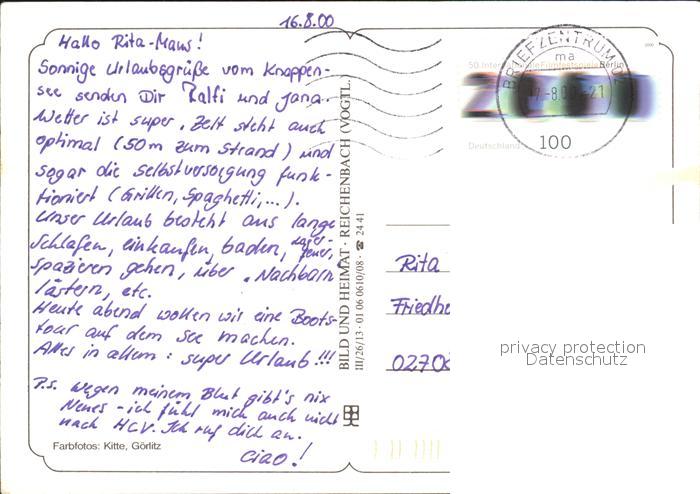 16.8.00
Hallo Rita-Maus!
Sonnige Urlaubsgrüße vom Knappen-
see senden Dir Ralfi und Jana.
Wetter ist super, Zelt steht auch
optimal (50m zum Strand) und
sogar die Selbstversorgung funk-
tioniert (Grillen, Spaghetti,...).
Unser Urlaub besteht aus lange
schlafen, einkaufen, baden, Lager-
feuer,
spazieren gehen, über "Nachbarn"
lästern, etc.
Heute abend wollen wir eine Boots-
tour auf dem See machen.
Alles in allem: super Urlaub!!!
P.S. wegen meinem Blut gibt's nix
Neues - ich fühl mich auch nicht
nach HCV. Ich ruf dich an.
Ciao!
Farbfotos: Kitte, Görlitz
BILD UND HEIMAT · REICHENBACH (VOGTL.
III/26/13 · 01 06 0610/08 · ☎ 24 41
50. Internationale Filmfestspiele Berlin
Deutschland
BRIEFZENTRUM
ma
17.-8.00-21
100
Rita
Friedhe
0270
privacy protection
Datenschutz